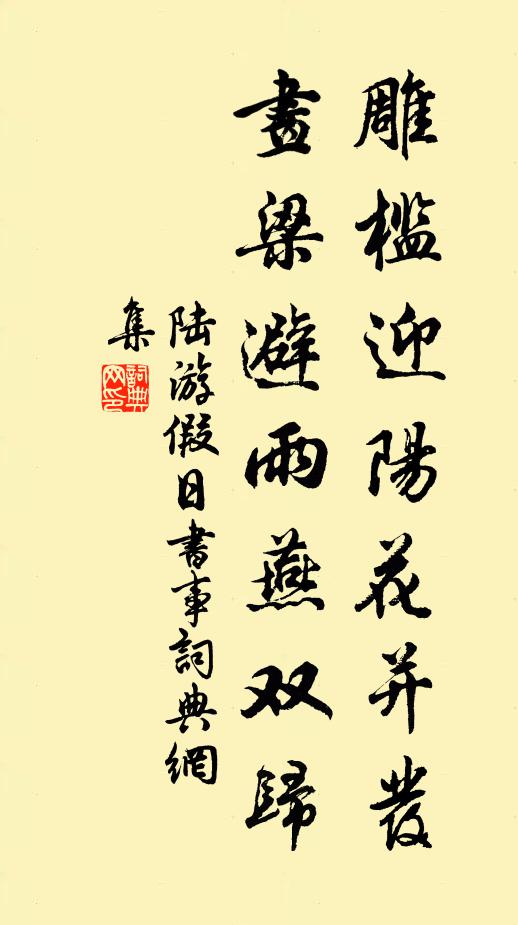 雕檻迎陽花并發
畫梁避雨燕双歸
陆游假日書事詞典網
集
詞典网印